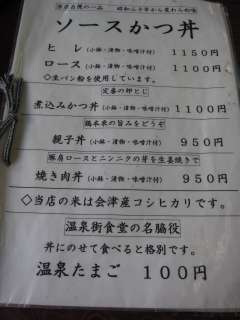 当店自慢の一品 昭和三十年から変わらぬ味
ソースかつ丼
ヒレ (小鉢・漬物・味噌汁付) 1150円
ロース (小鉢・漬物・味噌汁付) 1100円
◇生パン粉を使用しています。
定番の卵とじ
煮込みかつ丼 (小鉢・漬物・味噌汁付) 1100円
鶏本来の旨みをどうぞ
親子丼 (小鉢・漬物・味噌汁付) 950円
豚肩ロースとニンニクの芽を生姜焼きで
焼き肉丼 (小鉢・漬物・味噌汁付) 950円
◇当店の米は会津産コシヒカリです。
温泉街食堂の名脇役
丼にのせて食べると格別です。
温泉たまご 100円